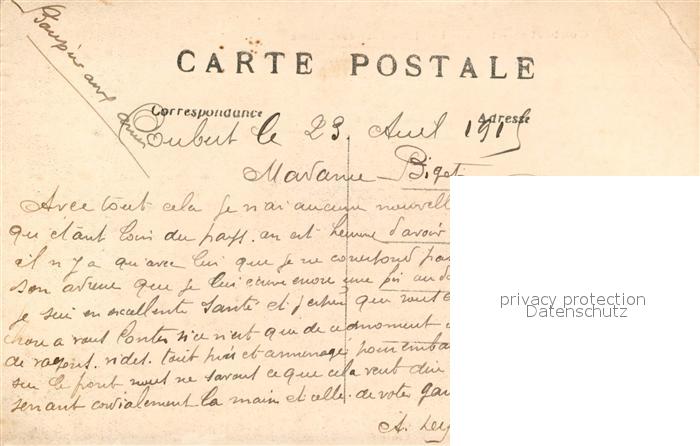 Bonjour aux amis
CARTE POSTALE
Correspondance
Adresse
le 23 Avril 1915
Madame Bigot
Avec tout cela je n'ai aucune nouvelle
qu étant loin du pays. on est heureux d'avoir
il n y a qu'avec lui que je ne correspond pas
son adresse que je lui écrive encore une fois au
je suis en excellente santé et j espère que vous
chose a vous conter si ce n'est que de ce moment
de wagons. tout près et aménagé pour emba
sur le front nous ne savons ce que cela veut dire
serrant cordialement la main et celle. de votre
A.
privacy protection
Datenschutz